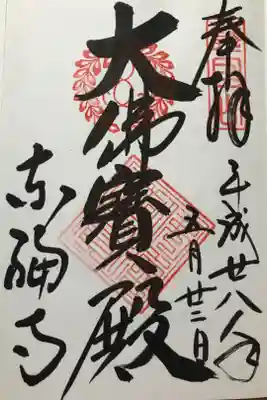 奉拝
平成廿八年
五月廿二日
大佛寳殿
東福寺